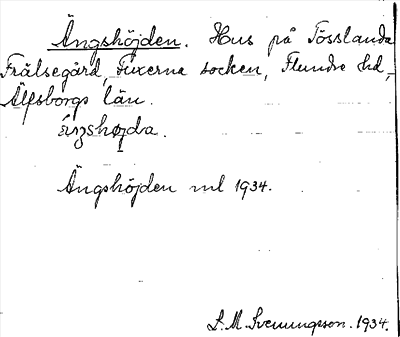 Ängshöjden. Hus på Tösslanda
Frälsegård, Fuxerna socken, Flundre hd,
Älfsborgs län.
Ängshöjden ml 1934.
S. M. Svenungsson. 1934.